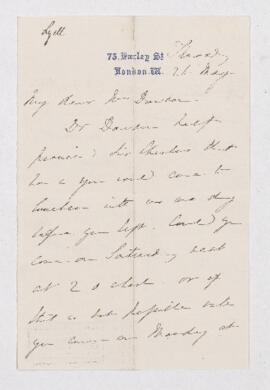 Lyell.
73. Harley St
London. W.
Thursday
26 May
My dear Mrs Dawson.
Dr Dawson half
promised Sir Charles that
he & you would come to
luncheon with us one day
before you left. Could you
come on Saturday next
at 2 o'clock or if
that is not possible
you come on Monday at